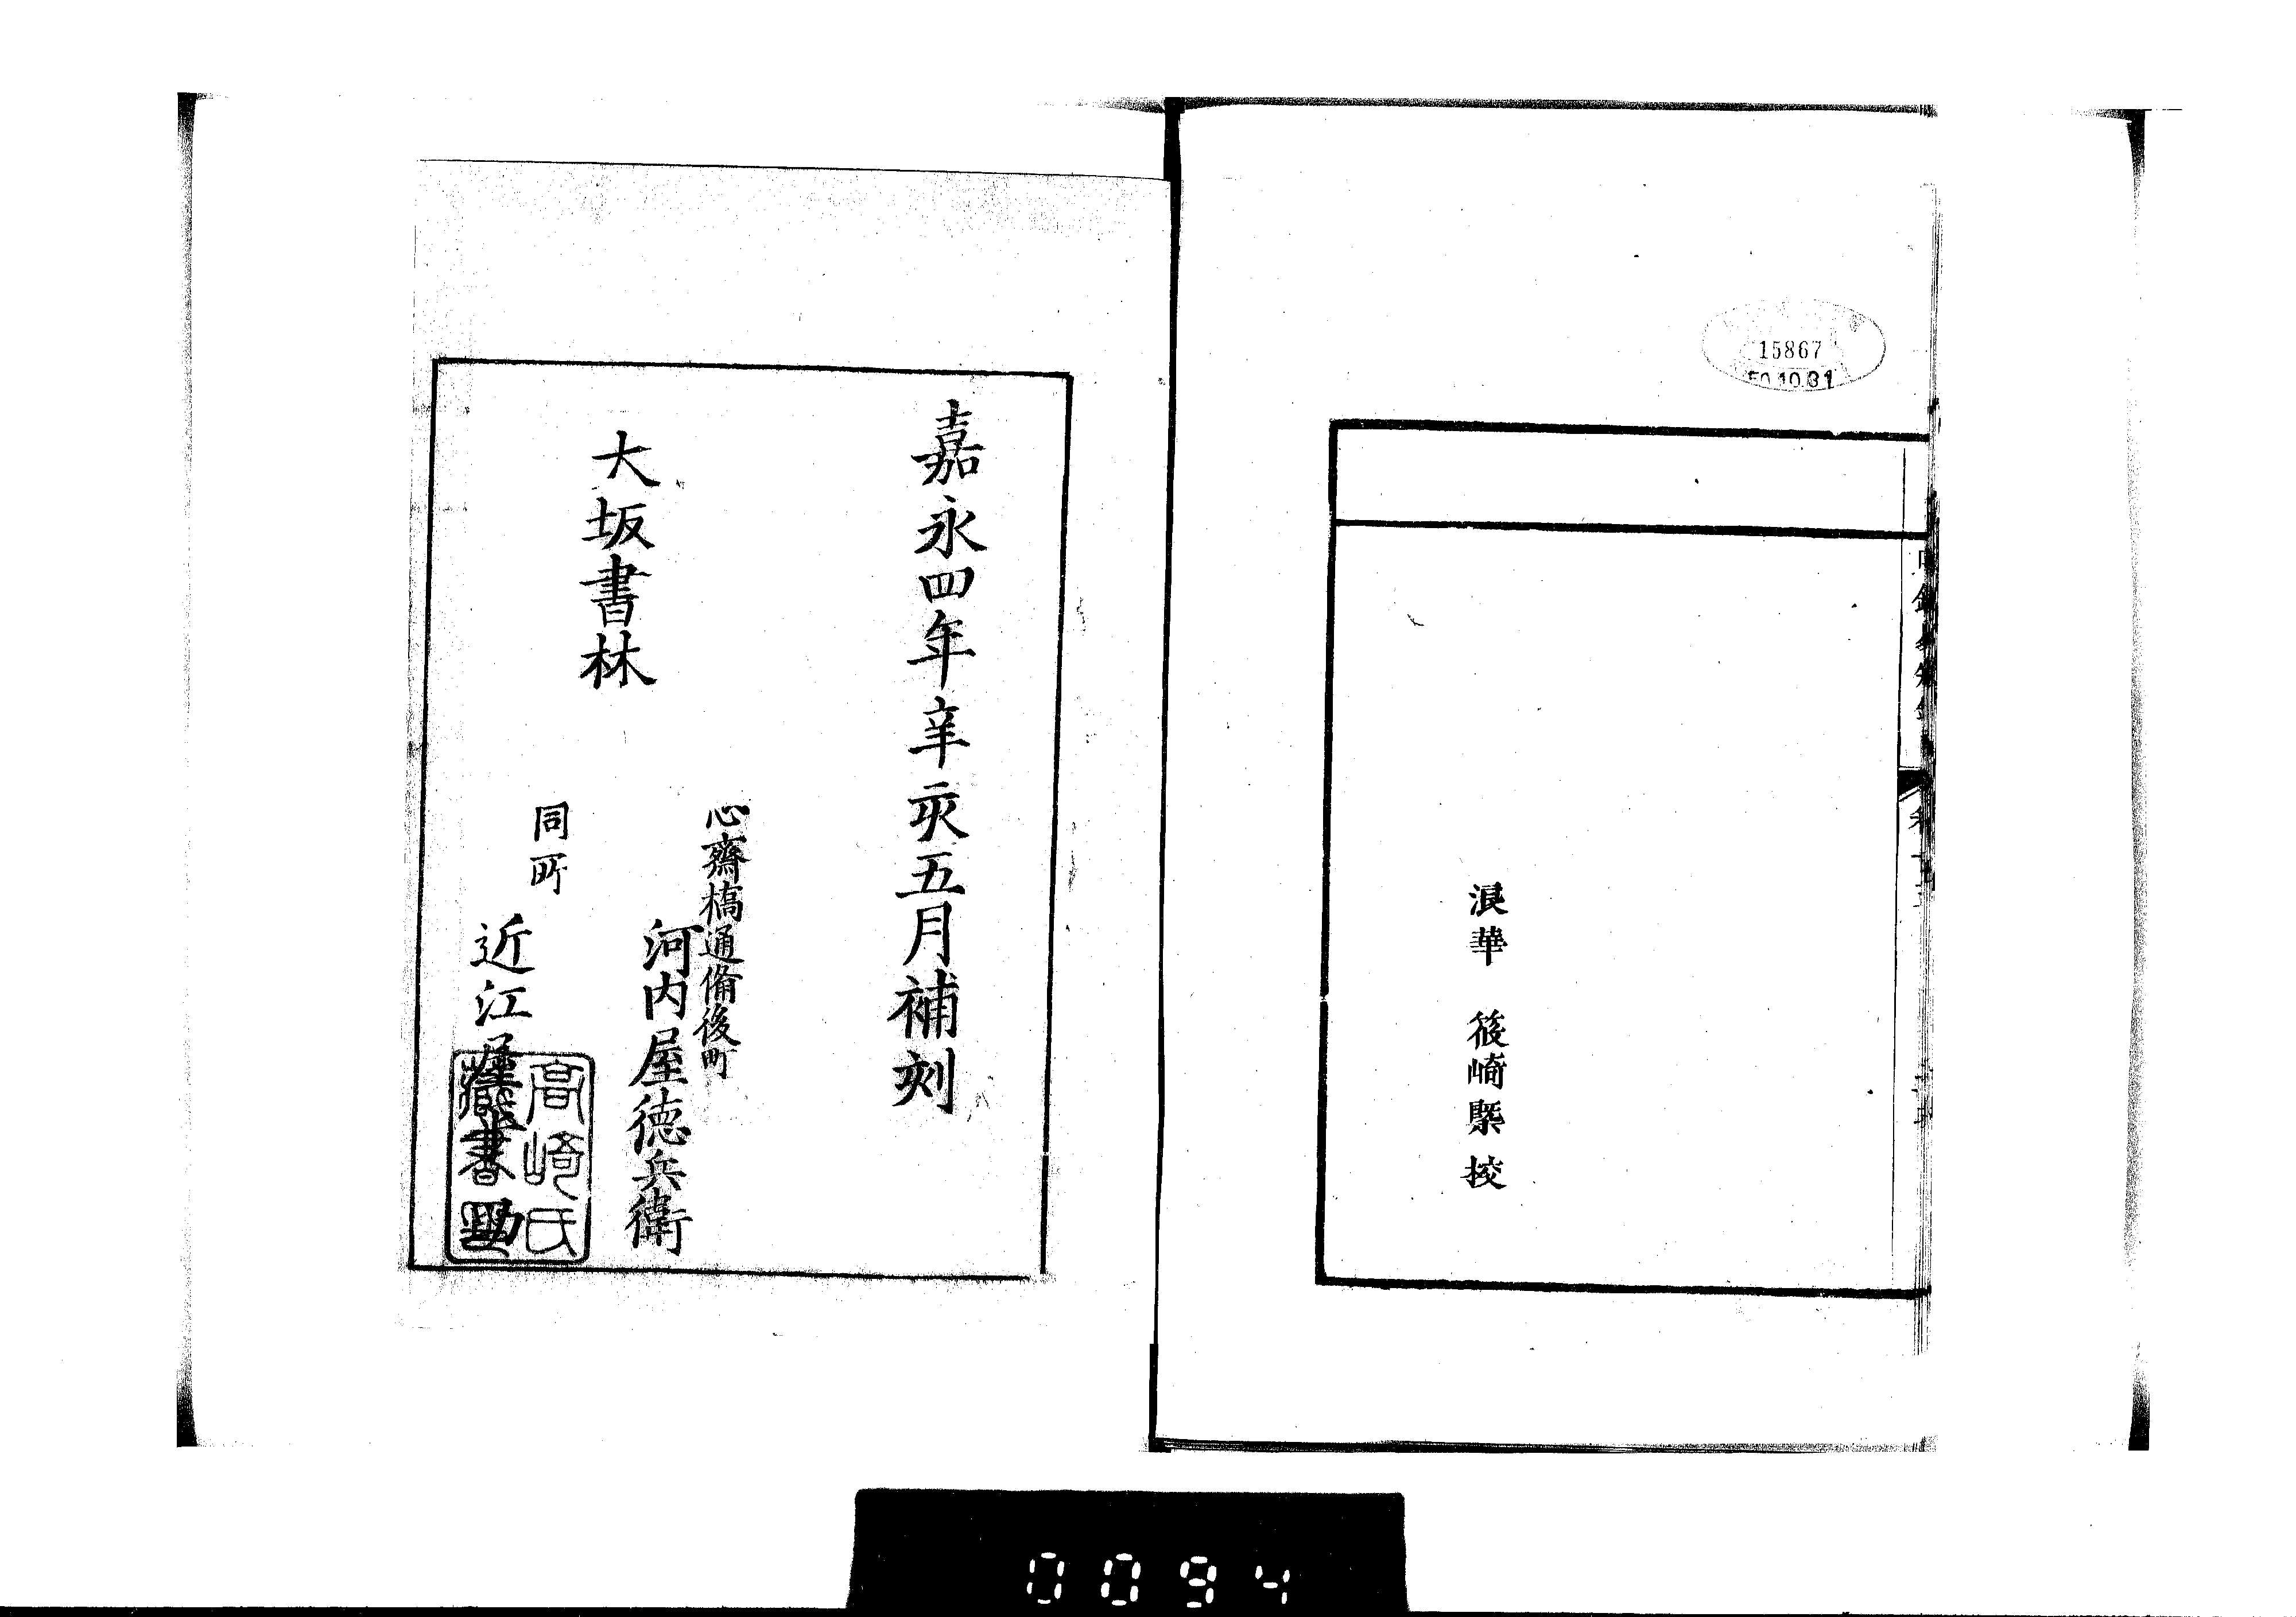 15867
50.10.31
浪華 篠崎槩挍
嘉永四年辛亥五月補刻
大坂書林
心齋橋通備後町
河内屋德兵衛
同所
近江屋
高崎氏
藏書
0094